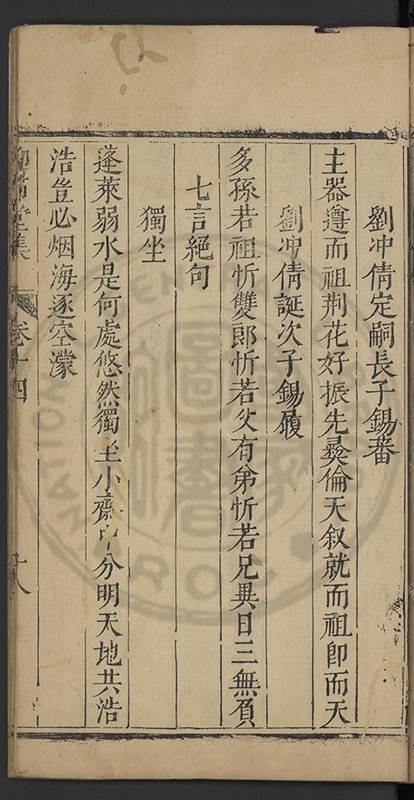 劉冲倩定嗣長子錫蕃
主器遵而祖荆花好振先彛倫天叙就而祖即而天
劉冲倩誕次子錫履
多孫若祖忻雙郎忻若父有弟忻若兄異日三無負
七言絕句
獨坐
蓬萊弱水是何處悠然獨坐小齋中分明天地共浩
浩豈必烟海逐空濛
集 卷十四
十八